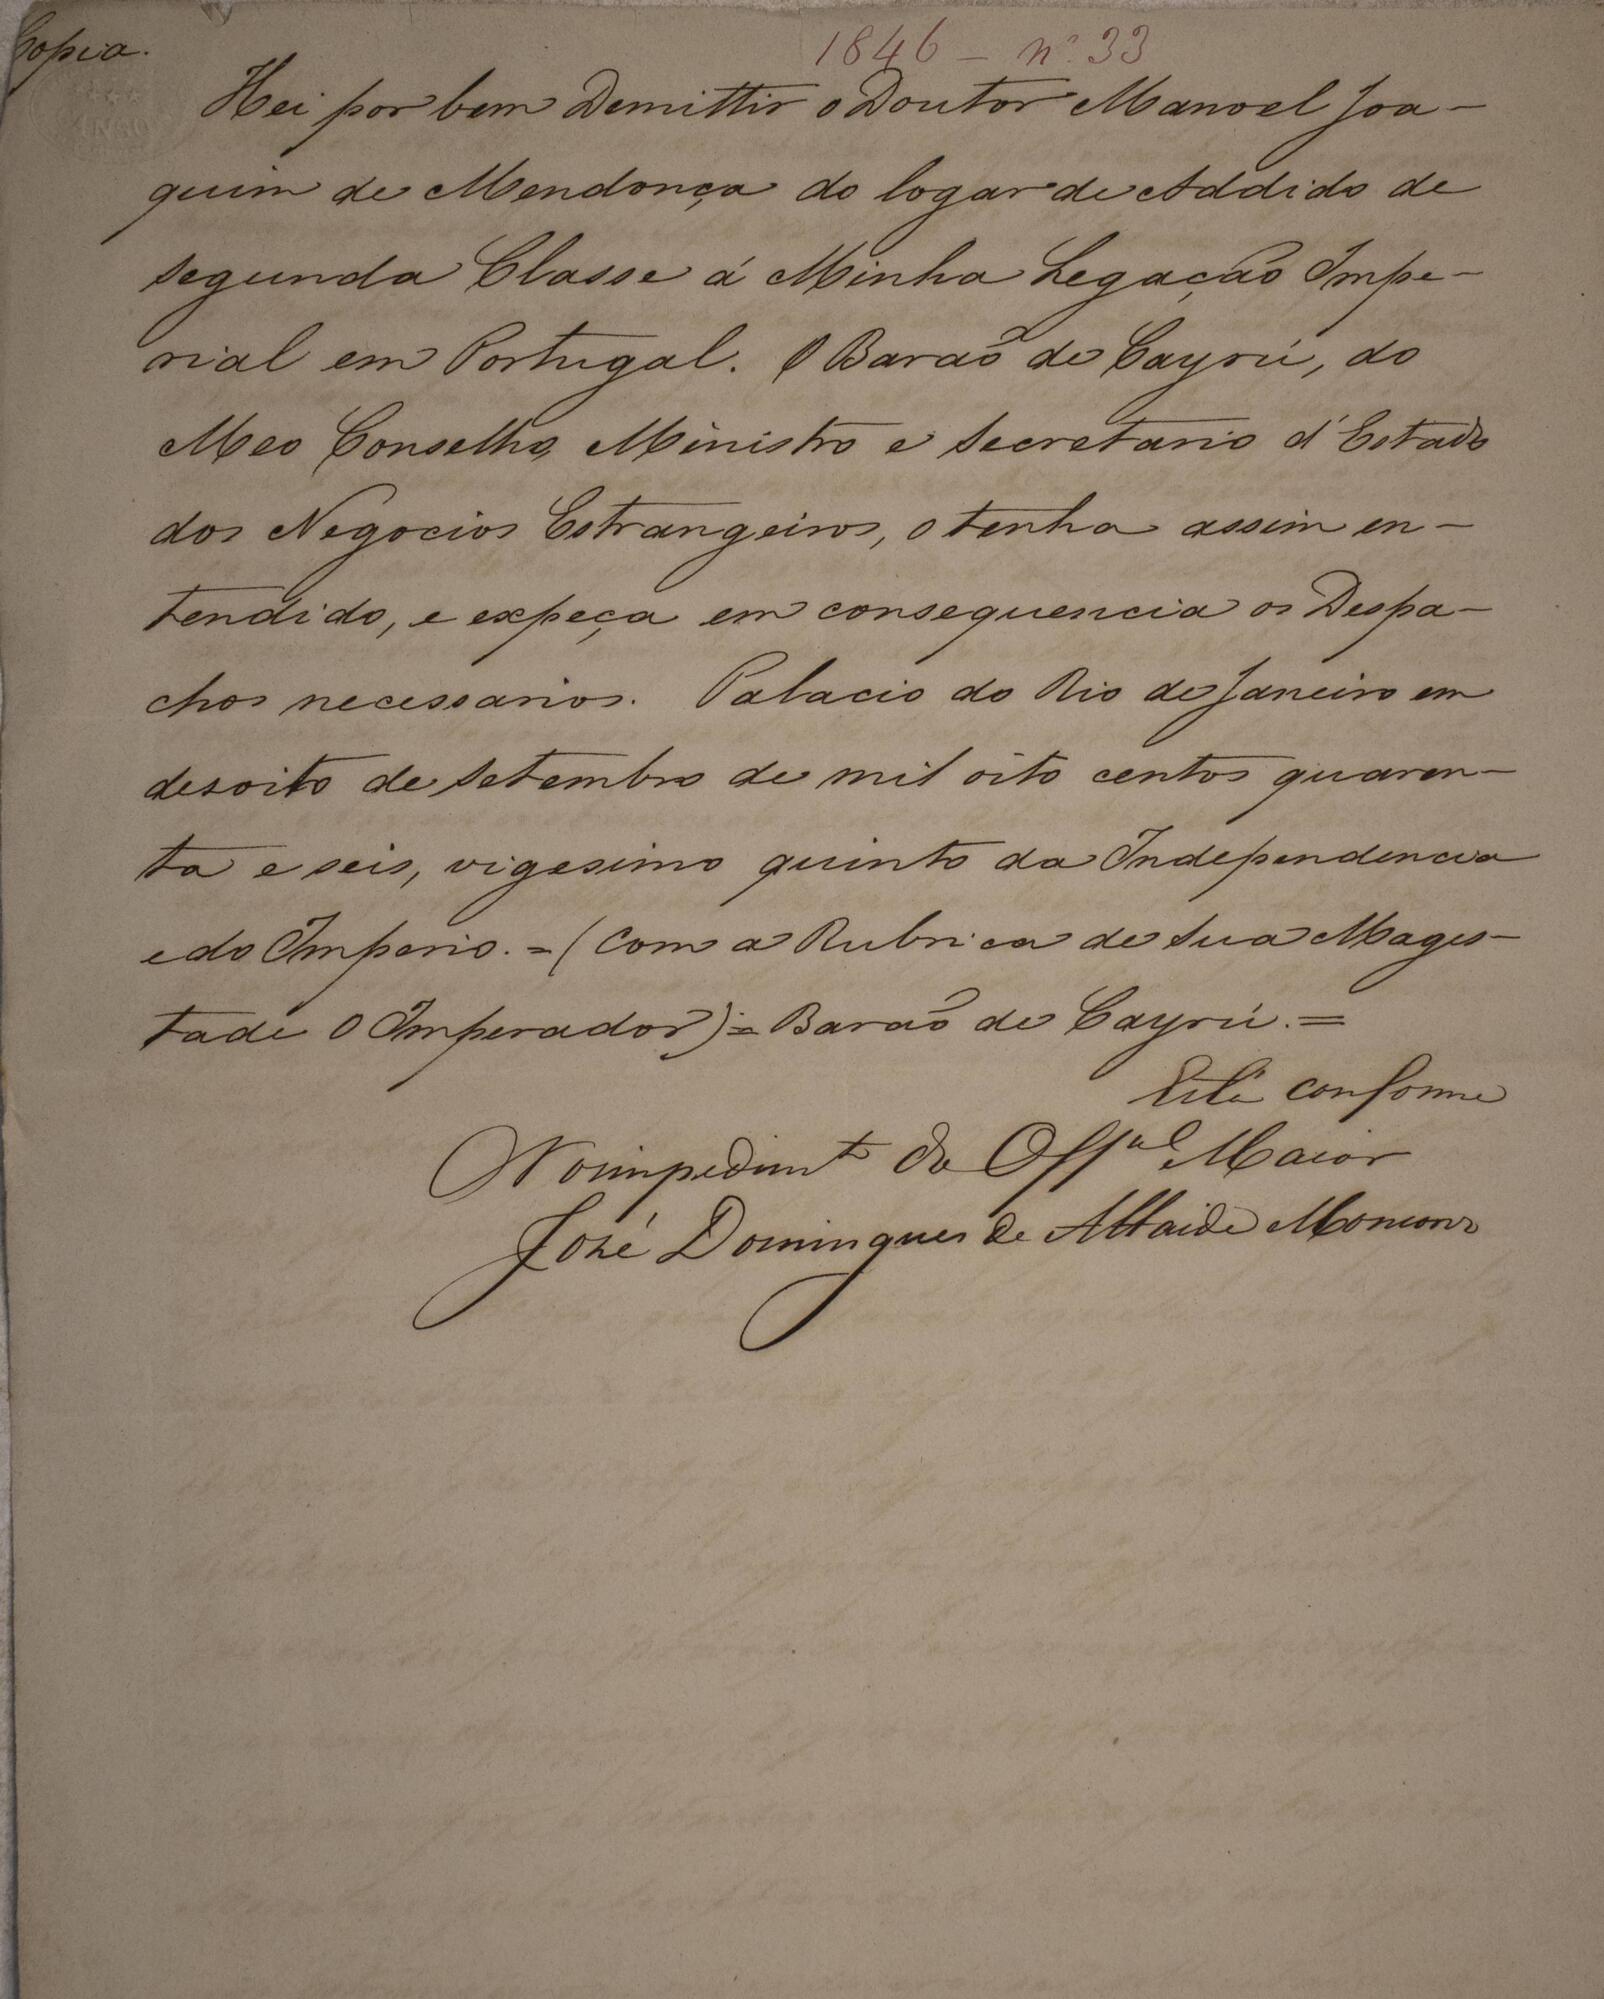 Copia.
1846 - nº 33
Hei por bem Demittir o Doutor Manoel Joa-
quim de Mendonça do logar de Addido de
segunda Classe á Minha Legação Impe-
rial em Portugal. O Barão de Cayrú, do
Meo Conselho, Ministro e Secretario d'Estado
dos Negocios Estrangeiros, o tenha assim en-
tendido, e expeça em consequencia os Despa-
chos necessarios. Palacio do Rio de Janeiro em
desoito de Setembro de mil oito centos quaren-
ta e seis, vigesimo quinto da Independencia
e do Imperio. = (Com a Rubrica de Sua Mages-
tade O Imperador) = Barão de Cayrú. =
Está conforme
No impedimt.º do Offal Maior
José Domingues de Attaide Moncorvo